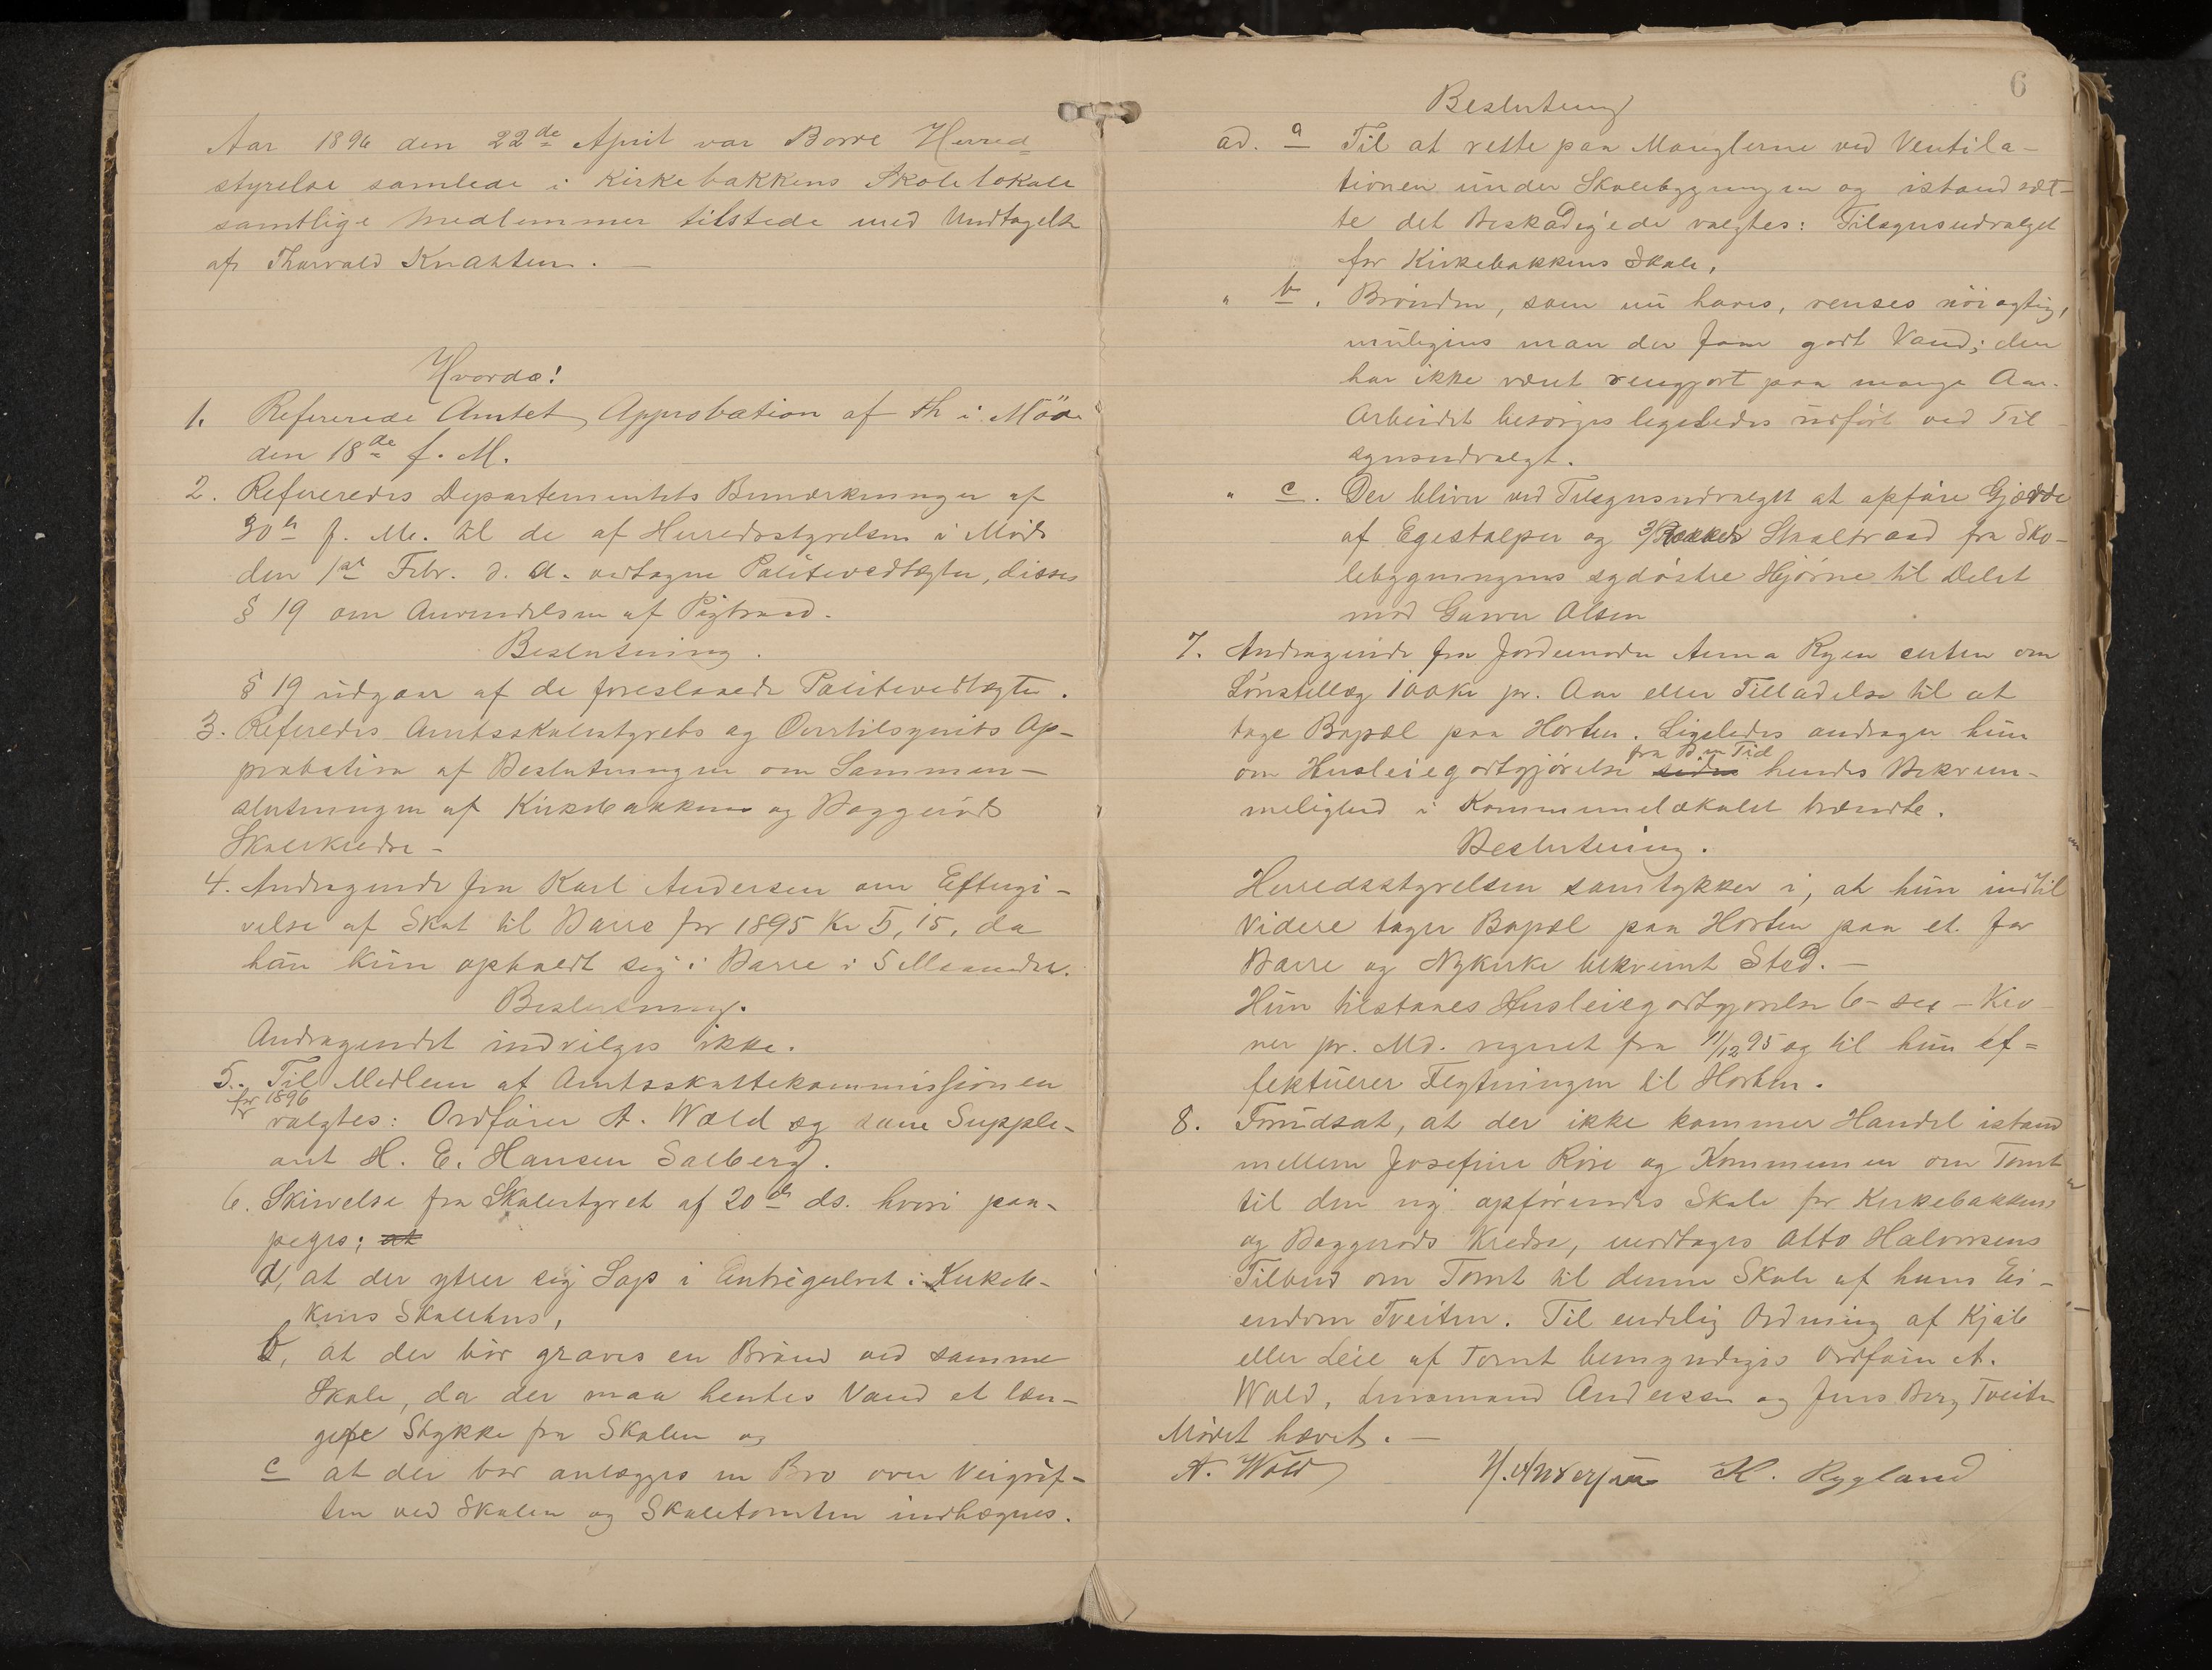 Aar 1896 den 22de April var Borre Herred=
styrelse samlede i Kirkebakkens Skolelokale
samtlige Medlemmer tilstede med Undtagelse
af Thorvald Knatten. —
Hvorda!
1. Refererede Amtets Approbation af th i Möde
den 18de f. M.
2. Refereredes Departementets Bemærkninger af
30te f. M. til de af Herredsstyrelsen i Møde
den 1ste Febr. d. A. vedtagne Politivedtægter, disses
§ 19 om Anvendelsen af Pigtraad.
Beslutning.
§ 19 udgaar af de foreslaaede Politivedtægter.
3. Referedes Amtsskolestyrets og Overtilsynets Ap-
probation af Beslutningen om Sammen-
slutningen af Kirkebakkens og Baggerøds
Skolekredse -
4. Andragende fra Karl Andersen om Eftergi-
velse af Skat til Borre for 1895 Kr 5,15, da
han kun opholdt sig i Borre i 5 Maaneder.
Beslutning.
Andragendet indvilges ikke.
5. Til Medlem af Amtsskattekommissionen
for 1896
valgtes: Ordfører A. Wold og som Supple-
ant H. E. Hansen Solberg.
6. Skrivelse fra Skolestyret af 20de ds. hvori paa-
peges; at
a, at der ytrer sig Sop i Entregulvet i Kirkeb-
kens Skolehus,
b, at der bör graves en Brönd ved samme
Skole, da der maa hentes Vand et læn-
gere Stykke fra Skolen og
c at der bør anlægges en Bro over Veigröf-
ten ved Skolen og Skoletomten indhegnes.
6
Beslutning
ad. a Til at rette paa Manglerne ved Ventila-
tionen under Skolebygningen og istandsæt-
te det Beskadigede valgtes: Tilsynsudvalget
for Kirkebakkens Skole.
" b. Brönden, som nu haves, renses nöiagtig,
muligens man der faar godt Vand; den
har ikke været rengjort paa mange Aar.
Arbeidet besørges ligeledes udført ved Til-
synsudvalgt.
" c. Der bliver ved Tilsynsudvalget at opføre Gjærde
af Egestolper og 3 Rækker Staaltraad fra Sko-
lebygningens sydöstre Hjörne til Delet
mod Gunner Olsen
7. Andragende fra Jordemoder Anna Ryen enten om
Lönstillæg 100 kr pr. Aar eller Tilladelse til at
tage Bopæl paa Horten. Ligeledes andrager hun
fra den Tid
om Husleiegodtgjörelse siden hendes Bekvem-
melighed i Kommunelokalet brændte.
Beslutning.
Herredsstyrelsen samtykker i, at hun indtil
Videre tager Bopæl paa Horten paa et for
Borre og Nykirke bekvemt Sted. —
Hun tilstaaes Husleiegodtgjörelse 6 - sex - Kro-
ner pr. Md. regnet fra 11/12 95 og til hun ef=
fektuerer Flytningen til Horten.
8. Forudsat, at der ikke kommer Handel istand
mellem Josefine Röre og Kommunen om Tomt
til den ny opförendes Skole for Kirkebakkens
og Baggerøds Kredse, modtages Otto Halvorsens
Tilbud om Tomt til denne Skole af hans Ei-
endom Tveiten. Til endelig Ordning af Kjøb
eller Leie af Tomt bemyndiges Ordfører A.
Wold, Lensmand Anderssen og Jens Berg Tveiten
Mødet hævet. —
A. Wold H. Andersen K. Rygland